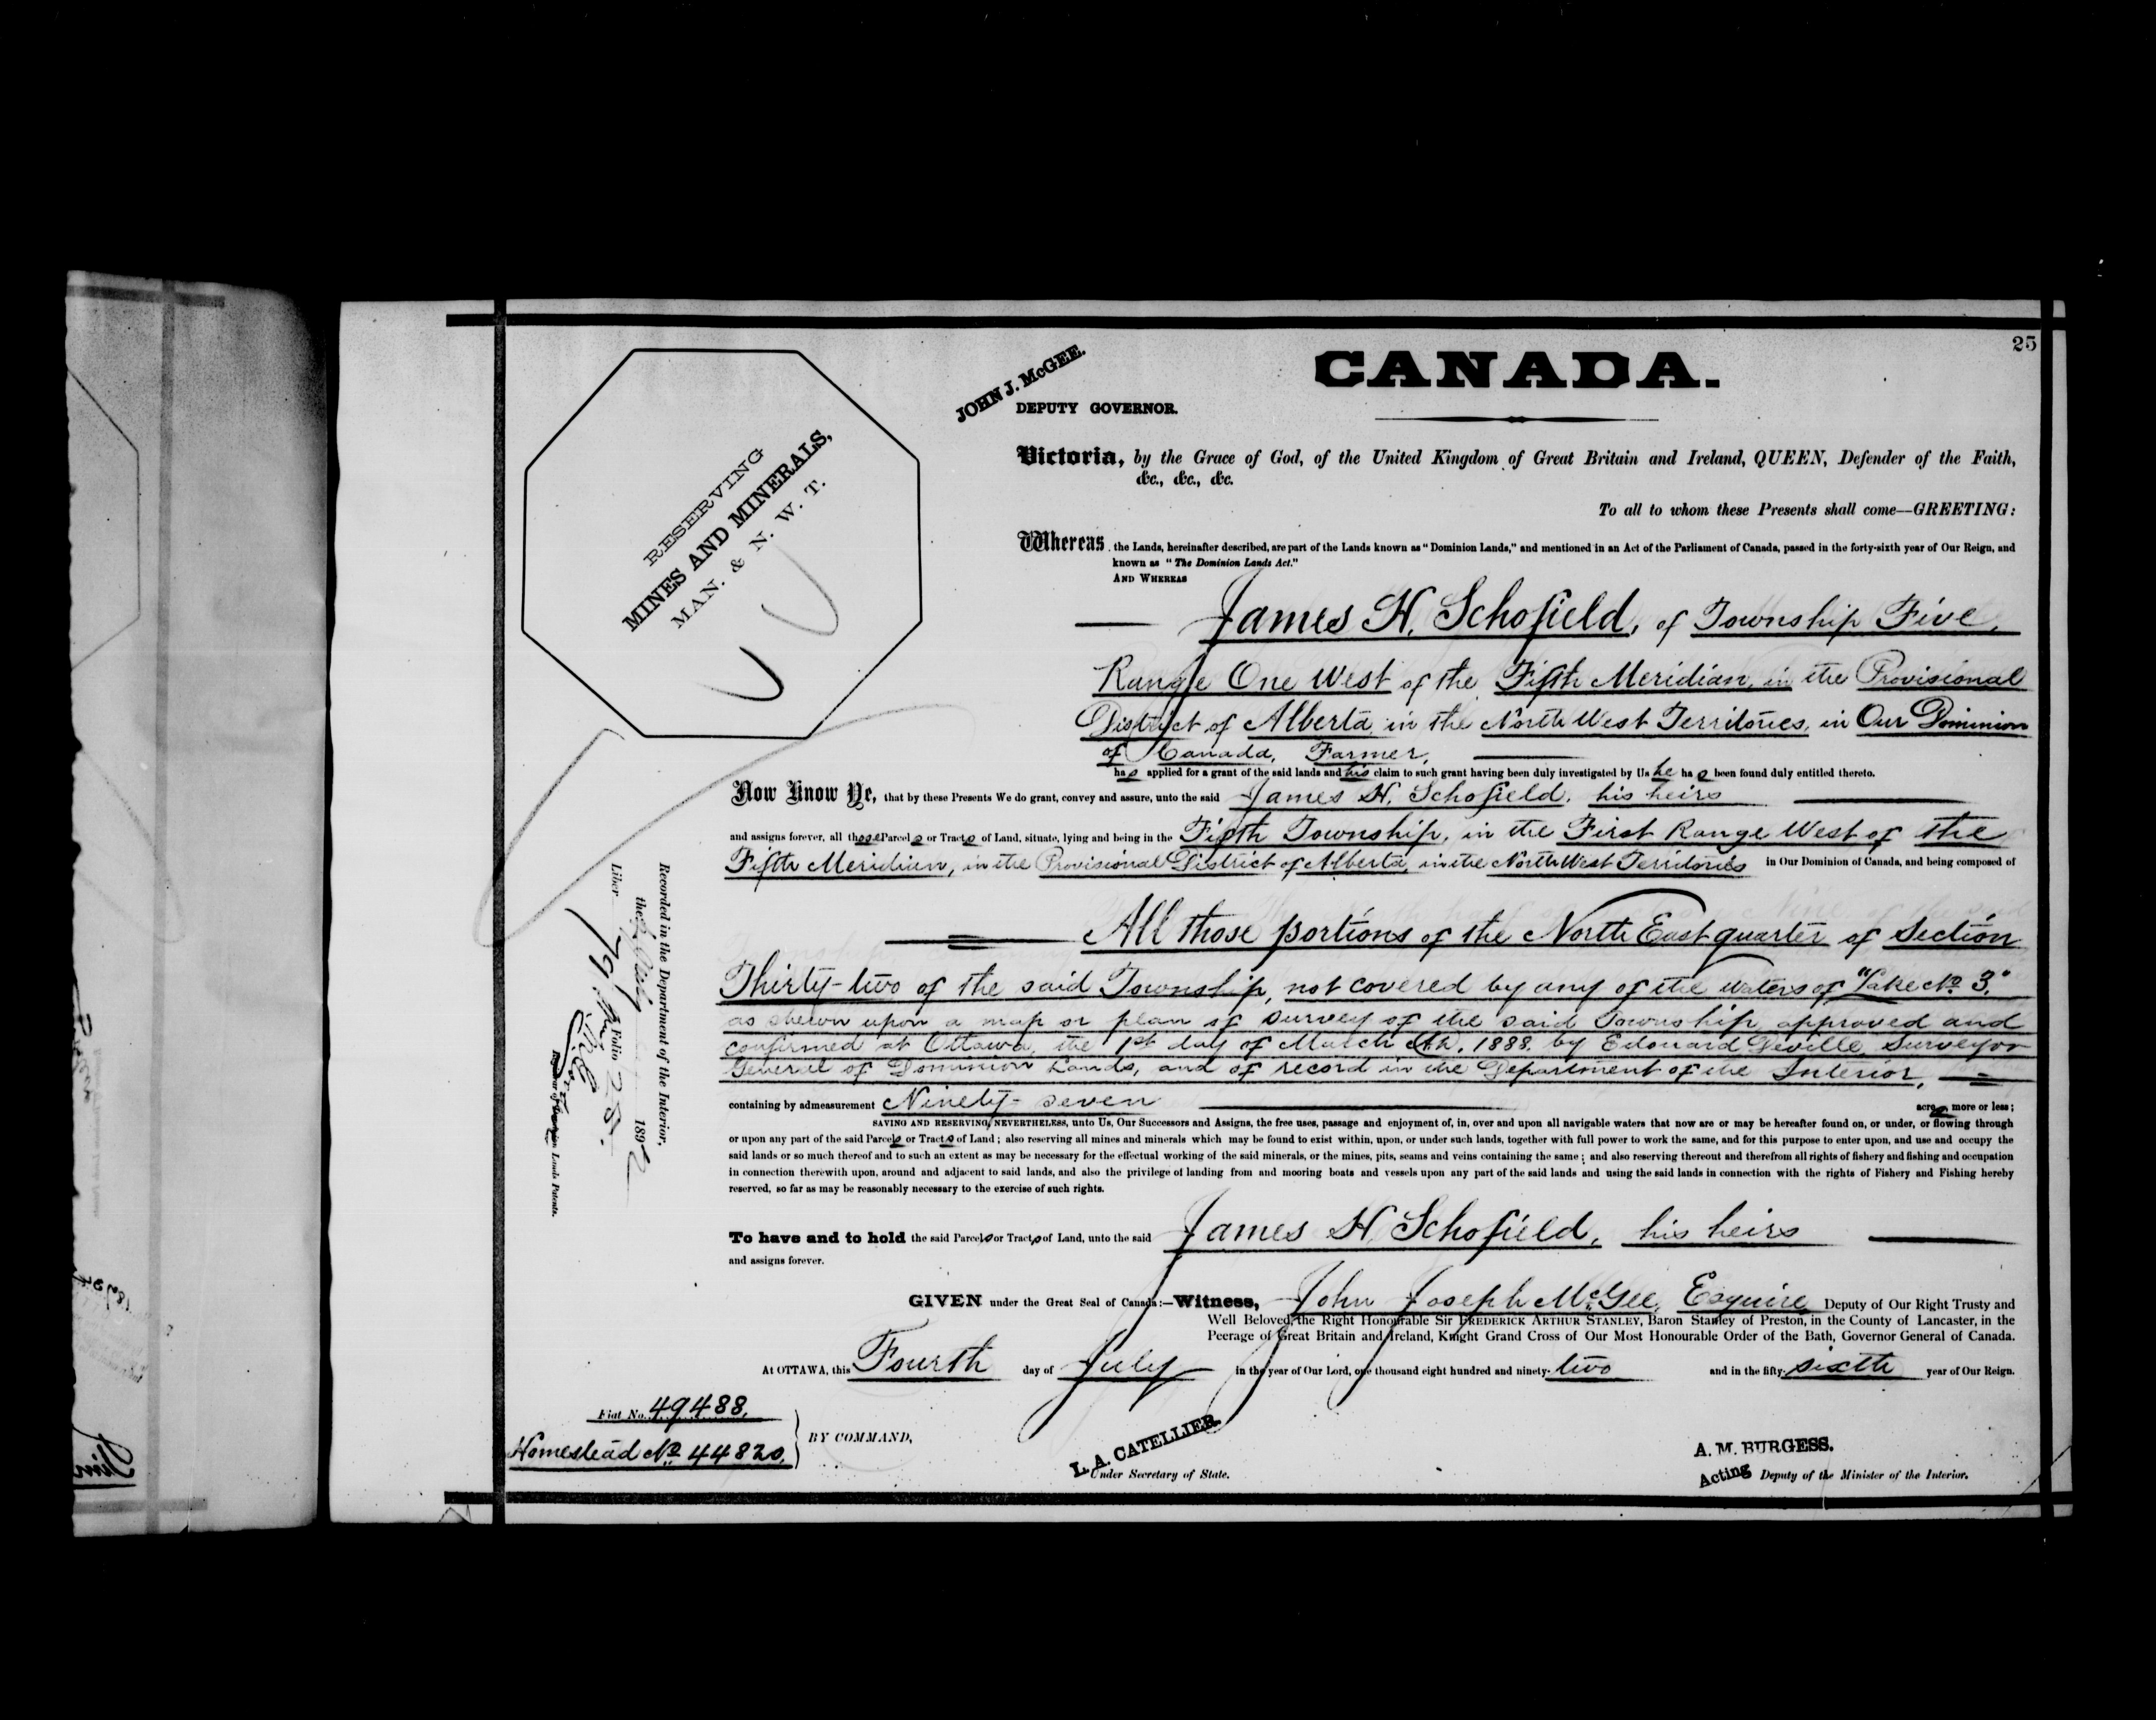 25
CANADA.
JOHN J. McGEE.
DEPUTY GOVERNOR.
RESERVING
MINES AND MINERALS,
MAN. & N. W. T.
Victoria, by the Grace of God, of the United Kingdom of Great Britain and Ireland, QUEEN, Defender of the Faith,
&c., &c., &c.
To all to whom these Presents shall come—GREETING:
Whereas the Lands, hereinafter described, are part of the Lands known as "Dominion Lands," and mentioned in an Act of the Parliament of Canada, passed in the forty-sixth year of Our Reign, and
known as "The Dominion Lands Act."
AND WHEREAS
James H. Schofield, of Township Five,
Range One West of the Fifth Meridian, in the Provisional
District of Alberta, in the North West Territories, in Our Dominion
of Canada, Farmer,
has applied for a grant of the said lands and his claim to such grant having been duly investigated by Us he has been found duly entitled thereto.
Now Know Ye, that by these Presents We do grant, convey and assure, unto the said James H. Schofield, his heirs
and assigns forever, all those Parcels or Tracts of Land, situate, lying and being in the Fifth Township, in the First Range West of the
Fifth Meridian, in the Provisional District of Alberta, in the North West Territories in Our Dominion of Canada, and being composed of
All those portions of the North East quarter of Section
Thirty-two of the said Township, not covered by any of the waters of "Lake No. 3."
as shewn upon a map or plan of survey of the said Township approved and
confirmed at Ottawa, the 1st day of March A.D. 1888, by Edouard Deville, Surveyor
General of Dominion Lands, and of record in the Department of the Interior,
containing by admeasurement Ninety-seven acres more or less;
SAVING AND RESERVING, NEVERTHELESS, unto Us, Our Successors and Assigns, the free uses, passage and enjoyment of, in, over and upon all navigable waters that now are or may be hereafter found on, or under, or flowing through
or upon any part of the said Parcels or Tracts of Land; also reserving all mines and minerals which may be found to exist within, upon, or under such lands, together with full power to work the same, and for this purpose to enter upon, and use and occupy the
said lands or so much thereof and to such an extent as may be necessary for the effectual working of the said minerals, or the mines, pits, seams and veins containing the same; and also reserving thereout and therefrom all rights of fishery and fishing and occupation
in connection therewith upon, around and adjacent to said lands, and also the privilege of landing from and mooring boats and vessels upon any part of the said lands and using the said lands in connection with the rights of Fishery and Fishing hereby
reserved, so far as may be reasonably necessary to the exercise of such rights.
To have and to hold the said Parcels or Tracts of Land, unto the said James H. Schofield, his heirs
and assigns forever.
GIVEN under the Great Seal of Canada:—Witness, John Joseph McGee, Esquire, Deputy of Our Right Trusty and
Well Beloved, the Right Honourable Sir FREDERICK ARTHUR STANLEY, Baron Stanley of Preston, in the County of Lancaster, in the
Peerage of Great Britain and Ireland, Knight Grand Cross of Our Most Honourable Order of the Bath, Governor General of Canada.
At OTTAWA, this Fourth day of July in the year of Our Lord, one thousand eight hundred and ninety-two and in the fifty-sixth year of Our Reign.
Fiat No. 49488.
Homestead No. 44820.
BY COMMAND,
L. A. CATELLIER.
Under Secretary of State.
A. M. BURGESS.
Acting Deputy of the Minister of the Interior.
Recorded in the Department of the Interior,
the July 1892
Liber 79 Folio 25.
Registrar of Dominion Lands Patents.